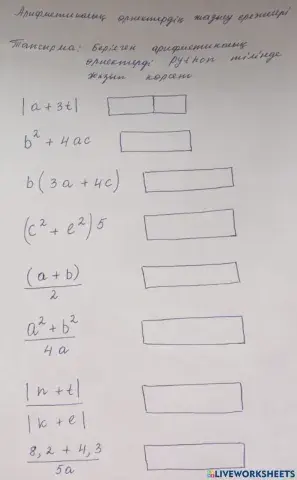 Арифметикалық өрнектердің жазылу ережелері
Тапсырма: Берілген арифметикалық
өрнектерді Python тілінде
жазып көрсет
|a + 3t|
b² + 4ac
b(3a + 4c)
(c² + e²)5
(a + b)
2
a² + b²
4a
|n + t|
|k + e|
8,2 + 4,3
5a
LIVEWORKSHEETS